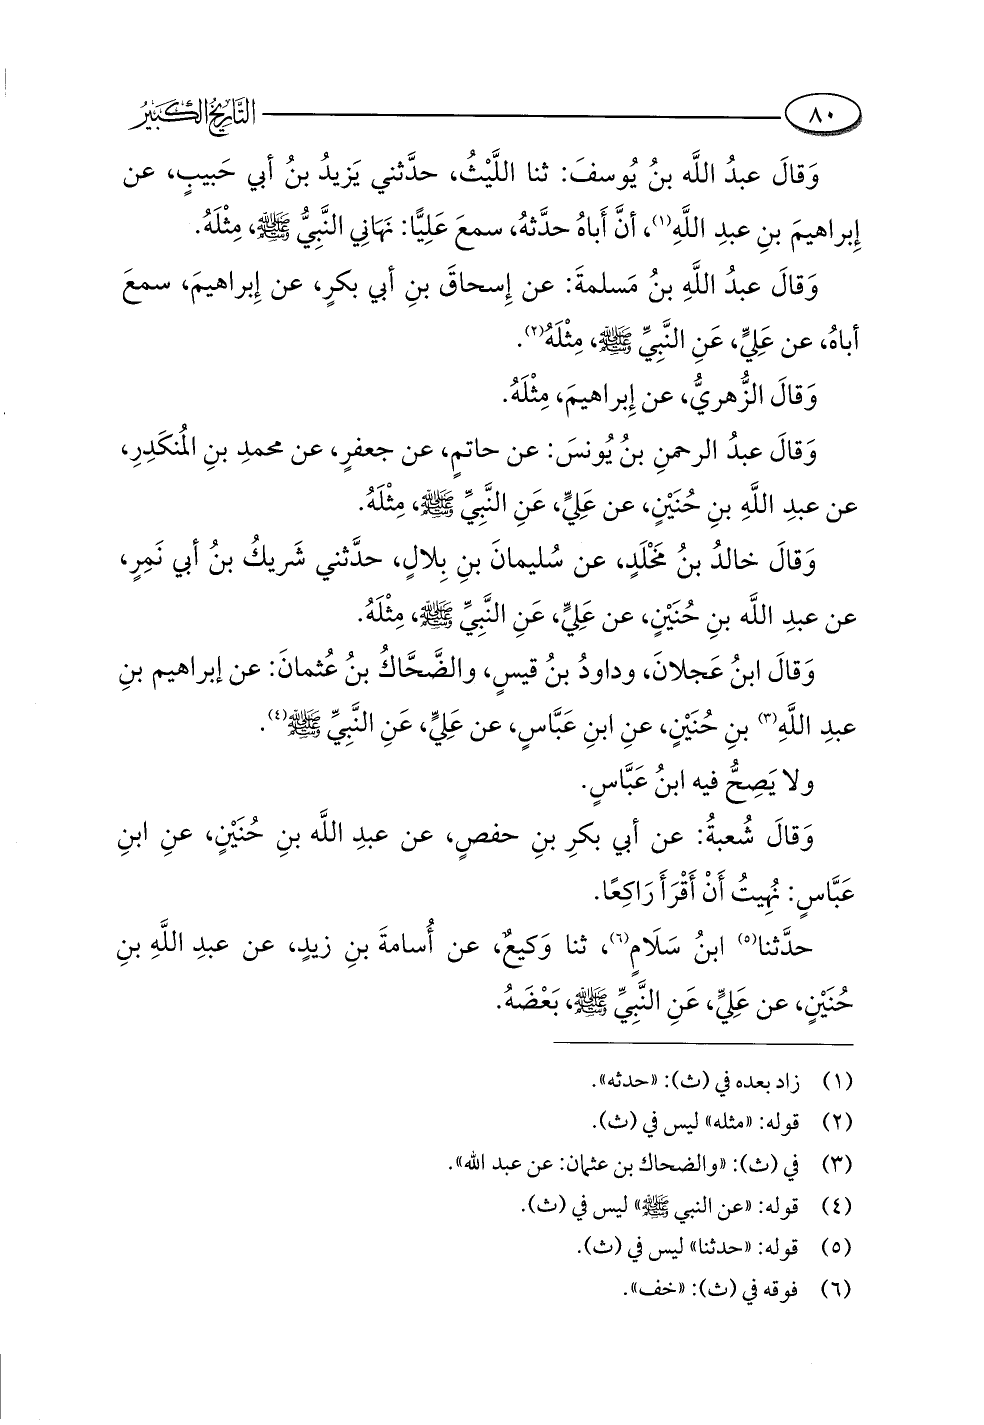 ٨٠ التَّارِيخُ الكَبِيرُ
وَقالَ عبدُ اللَّه بنُ يُوسفَ: ثنا اللَّيْثُ، حدَّثني يَزيدُ بنُ أبي حَبيبٍ، عن
إبراهيمَ بنِ عبدِ اللَّهِ(١)، أنَّ أَباهُ حدَّثهُ، سمعَ عَلِيًّا: نَهَانِي النَّبِيُّ ﷺ، مِثْلَهُ.
وَقالَ عبدُ اللَّهِ بنُ مَسلمةَ: عن إسحاقَ بنِ أبي بكرٍ، عن إبراهيمَ، سمعَ
أباهُ، عن عَلِيٍّ، عَنِ النَّبِيِّ ﷺ، مِثْلَهُ(٢).
وَقالَ الزُّهريُّ، عن إبراهيمَ، مِثْلَهُ.
وَقالَ عبدُ الرحمنِ بنُ يُونسَ: عن حاتمٍ، عن جعفرٍ، عن محمدِ بنِ المُنكَدِرِ،
عن عبدِ اللَّهِ بنِ حُنَيْنٍ، عن عَلِيٍّ، عَنِ النَّبِيِّ ﷺ، مِثْلَهُ.
وَقالَ خالدُ بنُ مَخْلَدٍ، عن سُليمانَ بنِ بِلالٍ، حدَّثني شَريكُ بنُ أبي نَمِرٍ،
عن عبدِ اللَّه بنِ حُنَيْنٍ، عن عَلِيٍّ، عَنِ النَّبِيِّ ﷺ، مِثْلَهُ.
وَقالَ ابنُ عَجلانَ، وداودُ بنُ قيسٍ، والضَّحَّاكُ بنُ عُثمانَ: عن إبراهيم بنِ
عبدِ اللَّهِ(٣) بنِ حُنَيْنٍ، عنِ ابنِ عَبَّاسٍ، عن عَلِيٍّ، عَنِ النَّبِيِّ ﷺ(٤).
ولا يَصِحُّ فيه ابنُ عَبَّاسٍ.
وَقالَ شُعبةُ: عن أبي بكرِ بنِ حفصٍ، عن عبدِ اللَّه بنِ حُنَيْنٍ، عنِ ابنِ
عَبَّاسٍ: نُهِيتُ أَنْ أَقْرَأَ رَاكِعًا.
حدَّثنا(٥) ابنُ سَلَامٍ(٦)، ثنا وَكيعٌ، عن أُسامةَ بنِ زيدٍ، عن عبدِ اللَّهِ بنِ
حُنَيْنٍ، عن عَلِيٍّ، عَنِ النَّبِيِّ ﷺ، بَعْضَهُ.
(١) زاد بعده في (ث): «حدثه».
(٢) قوله: «مثله» ليس في (ث).
(٣) في (ث): «والضحاك بن عثمان: عن عبد الله».
(٤) قوله: «عن النبي ﷺ» ليس في (ث).
(٥) قوله: «حدثنا» ليس في (ث).
(٦) فوقه في (ث): «خف».